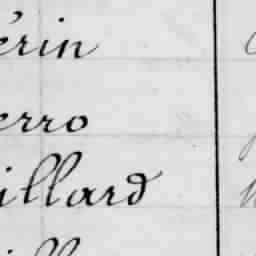 érin
erro
illard
ill